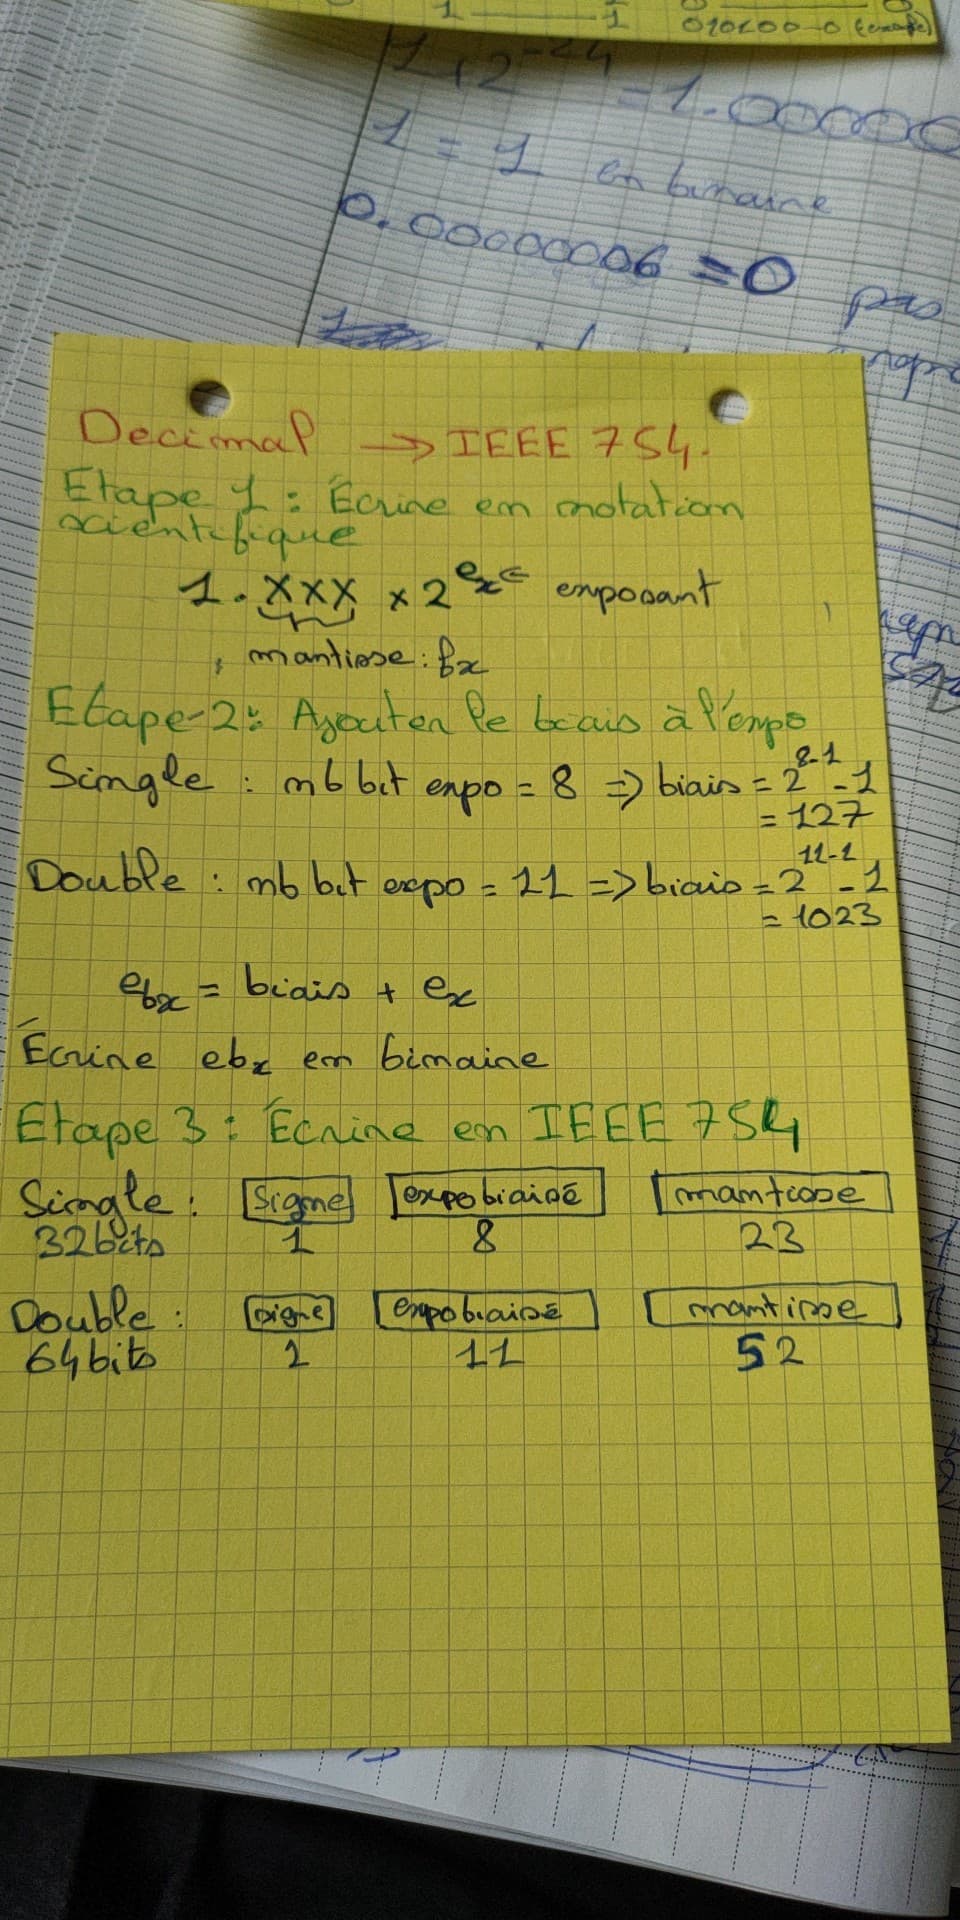 1 1
010100-0 (exacte)
1+2^-24 = 1.00000
1 = 1 en binaire
0.00000006 = 0 pas
Decimal → IEEE 754.
Etape 1 : Écrire en notation
scientifique
1.XXX × 2^ex ← exposant
mantisse : fx
Etape 2 : Ajouter le biais à l'expo
Single : nb bit expo = 8 => biais = 2^8-1 - 1
= 127
Double : nb bit expo = 11 => biais = 2^11-1 - 1
= 1023
ebx = biais + ex
Écrire ebx en binaire
Etape 3 : Écrire en IEEE 754
Single : signe expo biaisé mantisse
32bits 1 8 23
Double : signe expo biaisé mantisse
64 bits 1 11 52